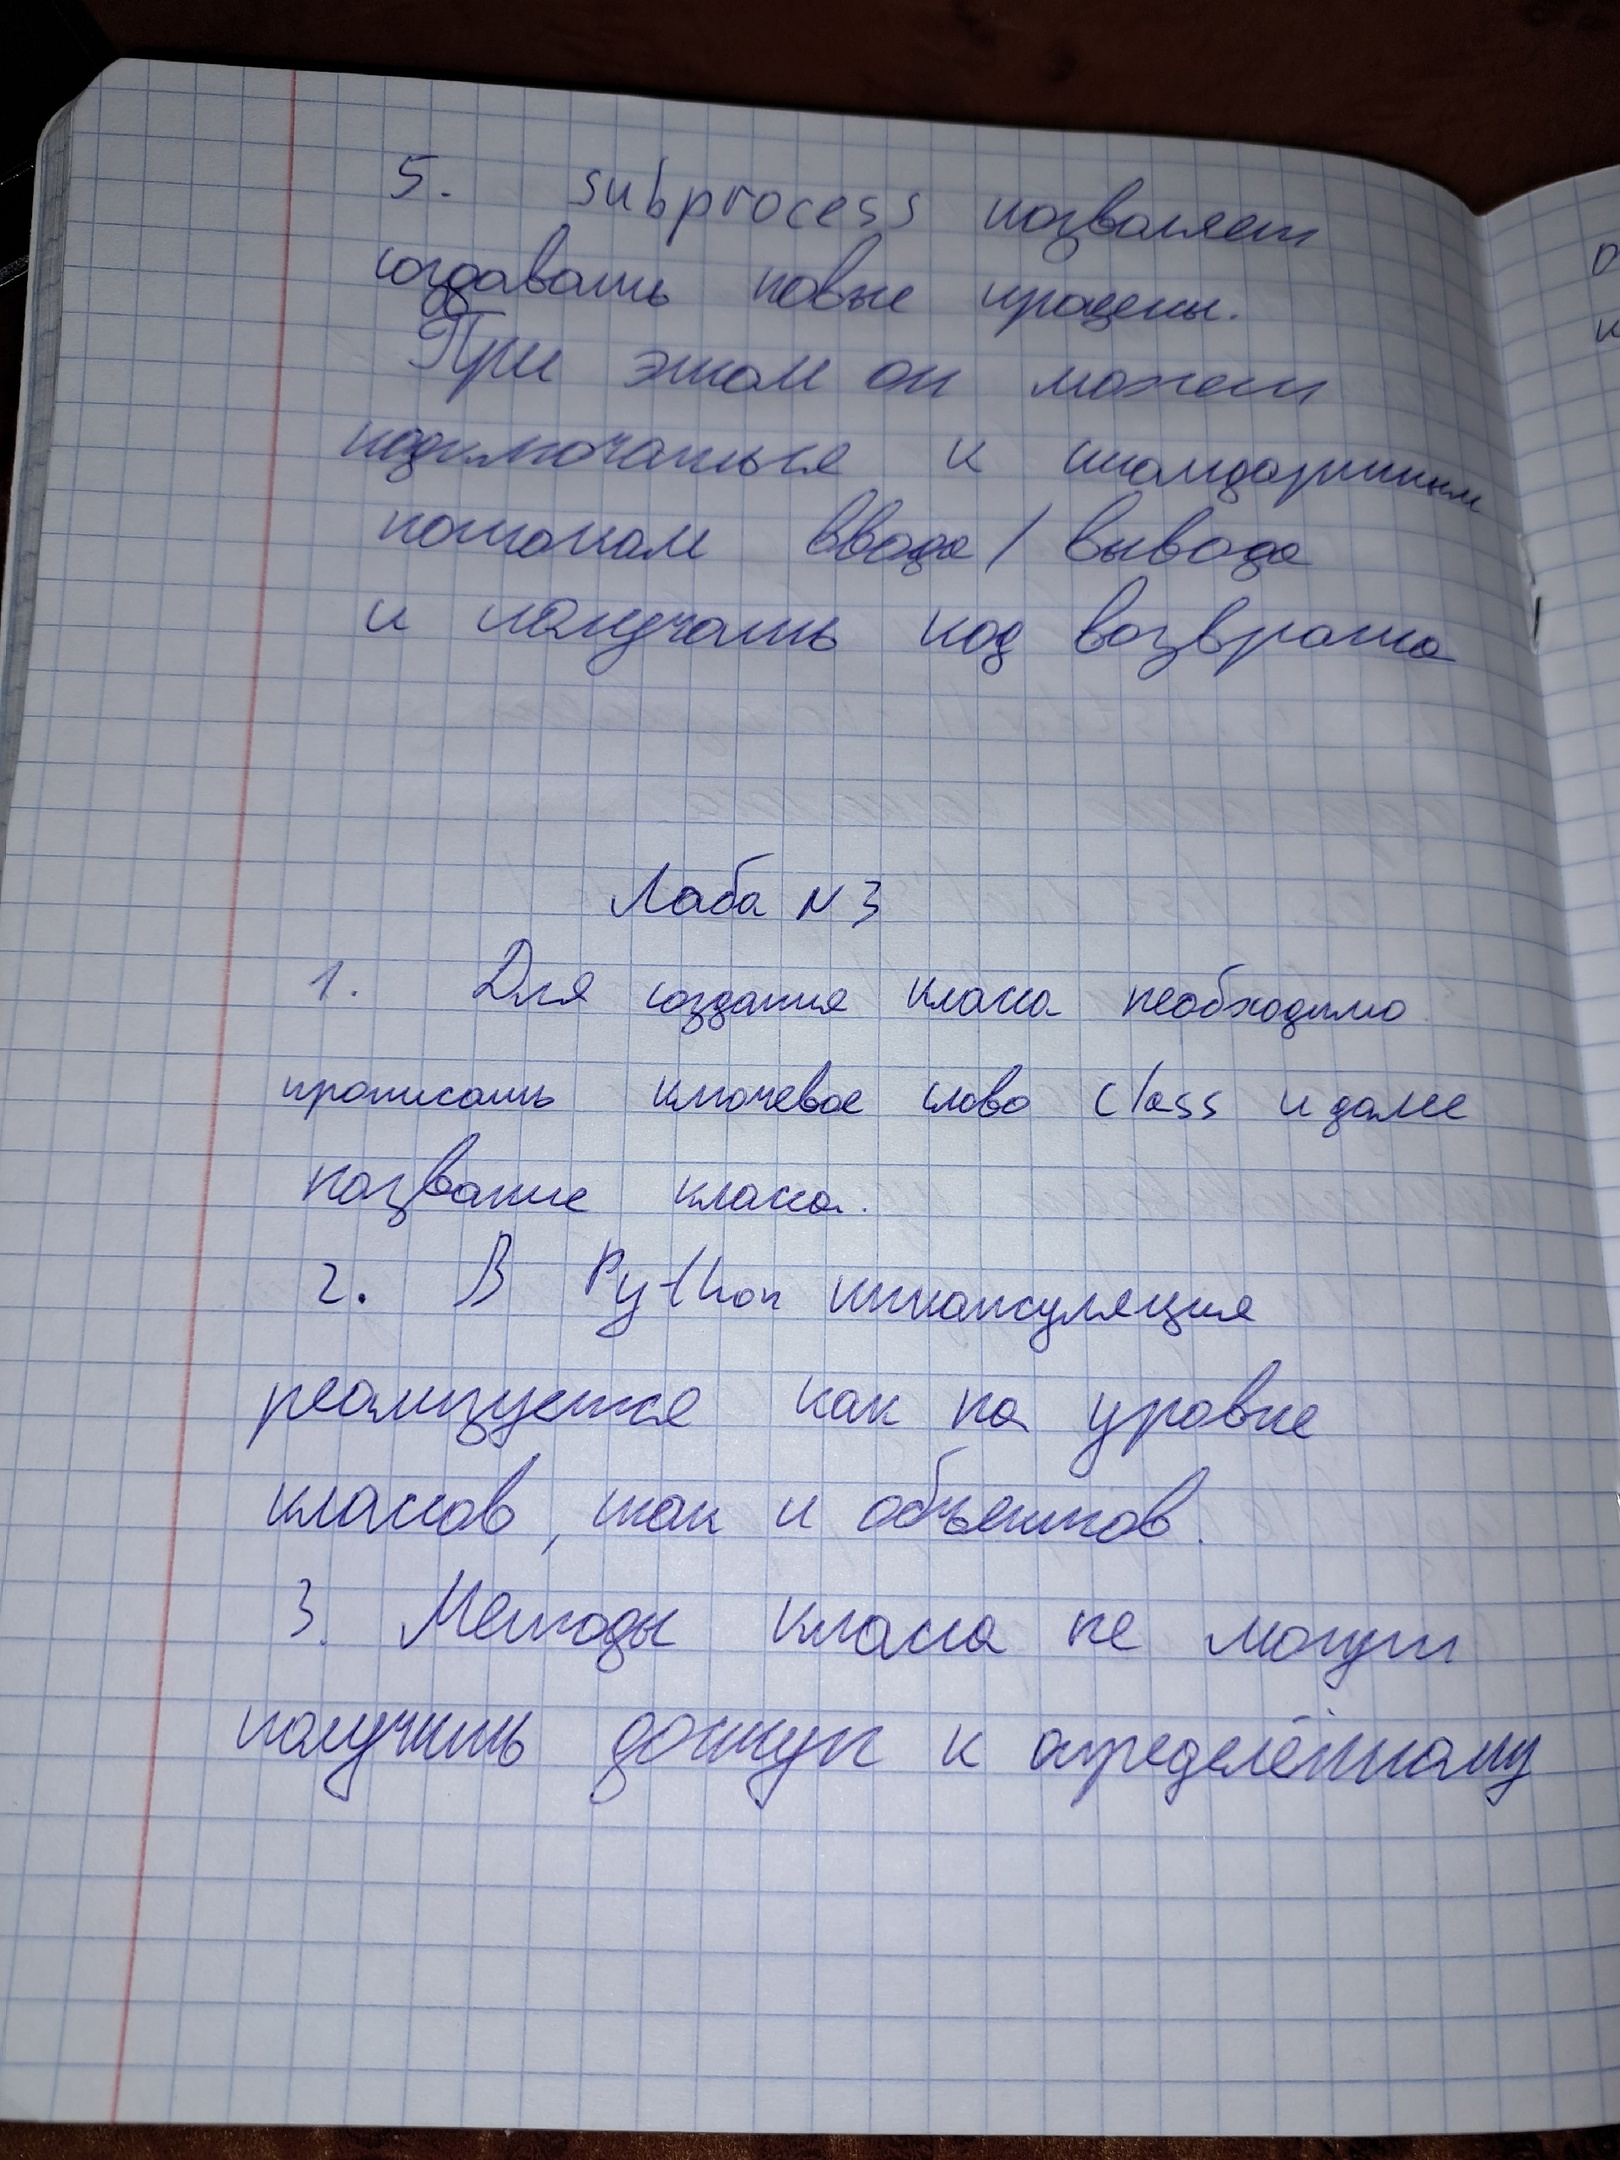 5. subprocess позволяет
создавать новые процессы.
При этом он может
подключаться к стандартным
потокам ввода / вывода
и получать код возврата
Лаба N 3
1. Для создания класса необходимо
прописать ключевое слово class и далее
название класса.
2. В Python инкапсуляция
реализуется как на уровне
классов, так и объектов.
3. Методы класса не могут
получить доступ к определённому